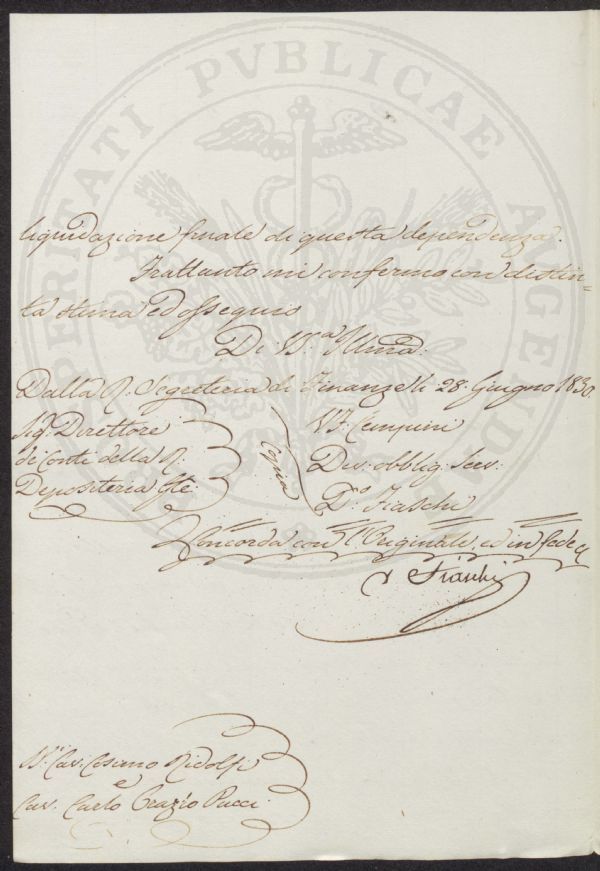 PROSPERITATI PVBLICAE AVGENDAE
liquidazione finale di questa dependenza.
Frattanto mi confermo con distin=
ta stima ed ossequio
Di VS.a Illma:
Dalla R. Segreteria di Finanze li 28. Giugno 1830.
Sig. Direttore
di Conti della R.
Depositeria Gle
Copia
Vo. Cempini
Dev. obblig. Serv:
Do. Fiaschi
Concorda con l'Originale, ed in fede
Fiaschi
SS.ri Cav. Cosimo Ridolfi
e
Cav. Carlo Orazio Pucci.